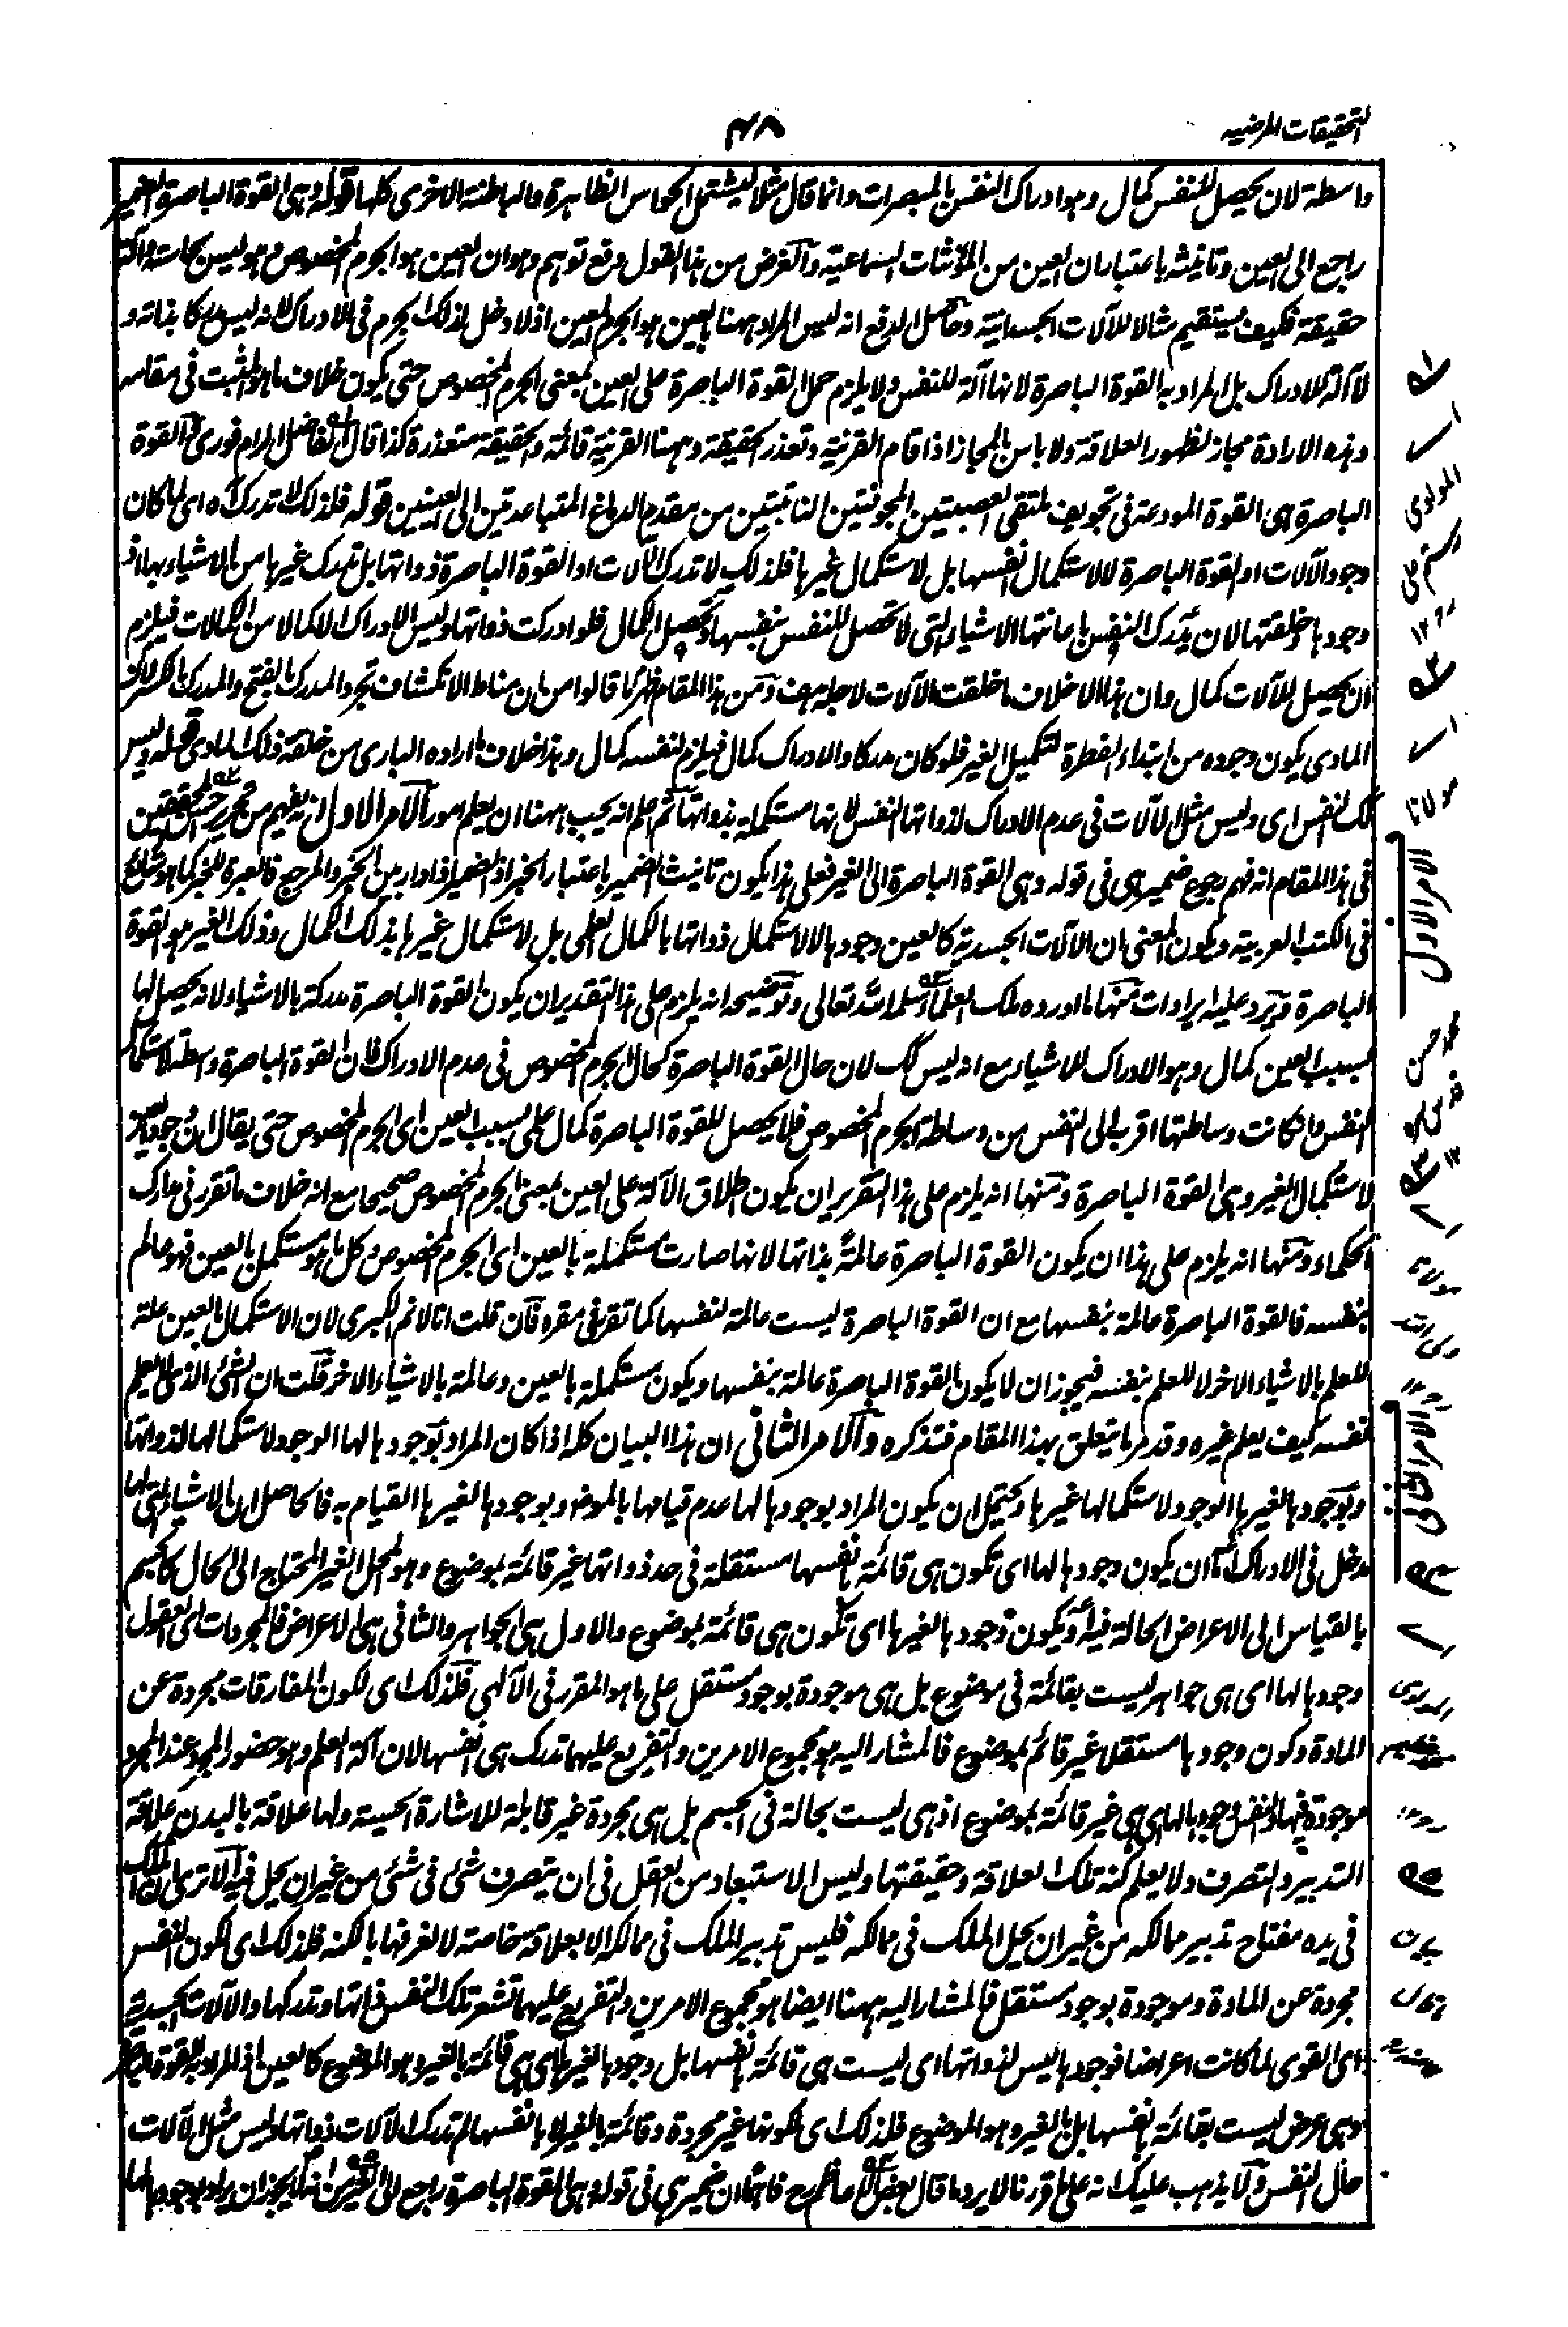 التحقيقات المرضيه
٤٨
واسطة لان يحصل للنفس كمال وهو ادراك النفس بالمبصرات وانما قال مثلا ليشتمل الحواس الظاهرة والباطنة الاخرى كلها قوله وهى القوة الباصرة الضمير
راجع الى العين وتانيثه باعتبار ان العين من المؤنثات السماعية والغرض من هذا القول دفع توهم وهو ان العين هو الجرم المخصوص وهو ليس بحاسة وآلة
حقيقة فكيف يستقيم مثالا للآلات الجسدانية وحاصل الدفع انه ليس المراد ههنا بالعين هو الجرم المعين اذ لا دخل لذلك الجرم فى الادراك لانه ليس مدركا بذاته و
لا آلة للادراك بل المراد به القوة الباصرة لانها آلة للنفس ولا يلزم حمل القوة الباصرة على العين بمعنى الجرم المخصوص حتى يكون خلاف ما هو المثبت فى مقامه
وهذه الارادة مجاز لظهور العلاقة ولا باس بالمجاز اذا قام القرينة وتعذر الحقيقة وههنا القرينة قائمة والحقيقة متعذرة كذا قال الفاضل الرامفورى ثم القوة
الباصرة هى القوة المودعة فى تجويف ملتقى العصبتين المجوفتين النابتتين من مقدم الدماغ المتباعدتين الى العينين قوله فلذلك لا تدرك آه اى لما كان
وجود الآلات او القوة الباصرة لا لاستكمال انفسها بل لاستكمال غيرها فلذلك لا تدرك الآلات او القوة الباصرة ذواتها بل تدرك غيرها من الاشياء بها اذ
وجودها وخلقتها لان يدرك النفس باعانتها الاشياء التى لا تحصل للنفس بنفسها وتحصل الكمال فلو ادركت ذواتها وليس الادراك الا كمالا من الكمالات فيلزم
ان يحصل للآلات كمال وان هذا الا خلاف ما خلقت الآلات لاجله هف ومن هذا المقام ظهر ما قالوا من ان مناط الانكشاف تجرد المدرك بالفتح والمدرك بالكسر لان
المادى يكون وجوده من ابتداء الفطرة لتكميل الغير فلو كان مدركا والادراك كمال فيلزم لنفسه كمال وهذا خلاف ما اراده البارى من خلقة ذلك المادى قوله وليس
كك النفس اى وليس مثل الآلات فى عدم الادراك لذواتها النفس لانها مستكملة بذواتها ثم اعلم انه يجب ههنا ان يعلم امور الامر الاول انه يفهم من تحرير بعض المحققين
فى هذا المقام انه فهم رجوع ضمير هى فى قوله وهى القوة الباصرة الى الغير فعلى هذا يكون تانيث الضمير باعتبار الخبر اذ الضمير اذا دار بين الخبر والمرجع فالعبرة للخبر كما هو شائع
فى الكتب العربية ويكون المعنى ان الآلات الجسدية كالعين وجودها لا لاستكمال ذواتها بالكمال العلمى بل لاستكمال غيرها بذلك الكمال وذلك الغير هو القوة
الباصرة ويرد عليه ايرادات منها ما اورده ملك العلماء سلمه الله تعالى وتوضيحه انه يلزم على هذا التقدير ان يكون القوة الباصرة مدركة بالاشياء لانه يحصل لها
بسبب العين كمال وهو الادراك للاشياء مع انه ليس كك لان حال القوة الباصرة كحال الجرم المخصوص فى عدم الادراك فان القوة الباصرة واسطة لاستكمال
النفس وان كانت وساطتها اقرب الى النفس من وساطة الجرم المخصوص فلا يحصل للقوة الباصرة كمال علمى بسبب العين اى الجرم المخصوص حتى يقال ان وجود العين
لاستكمال الغير وهى القوة الباصرة ومنها انه يلزم على هذا التقرير ان يكون اطلاق الآلة على العين بمعنى الجرم المخصوص صحيحا مع انه خلاف ما تقرر فى مدارك
الحكماء ومنها انه يلزم على هذا ان يكون القوة الباصرة عالمة بذاتها لانها صارت مستكملة بالعين اى الجرم المخصوص وكل ما هو مستكمل بالعين فهو عالم
بنفسه فالقوة الباصرة عالمة بنفسها مع ان القوة الباصرة ليست عالمة لنفسها كما تقرر فى مقره فان قلت انا لا نم الكبرى لان الاستكمال بالعين علة
للعلم بالاشياء الاخر لا للعلم بنفسه فيجوز ان لا يكون القوة الباصرة عالمة بنفسها ويكون مستكملة بالعين وعالمة بالاشياء الاخر قلت ان الشئ الذى لا يعلم
نفسه كيف يعلم غيره وقد مر ما يتعلق بهذا المقام فتذكره والامر الثانى ان هذا البيان كله اذا كان المراد بوجودها لها الوجود لاستكمالها لذواتها
وبوجودها لغيرها الوجود لاستكمالها غيرها ويحتمل ان يكون المراد بوجودها لها عدم قيامها بالموضوع وبوجودها لغيرها القيام به فالحاصل ان الاشياء التى لها
دخل فى الادراك اما ان يكون وجودها لها اى تكون هى قائمة بنفسها مستقلة فى حد ذواتها غير قائمة بموضوع وهو المحل الغير المحتاج الى الحال كالجسم
بالقياس الى الاعراض الحالة فيه او يكون وجودها لغيرها اى تكون هى قائمة بموضوع والاول هى الجواهر والثانى هى الاعراض فالمجردات اى العقول
وجودها لها اى هى جواهر ليست بقائمة فى موضوع بل هى موجودة بوجود مستقل على ما هو المقرر فى الآلهى فلذلك اى لكون المفارقات مجردة عن
المادة وكون وجودها مستقلا غير قائم بموضوع فالمشار اليه هو مجموع الامرين والتفريع عليهما تدرك هى انفسها لان آلة العلم وهو حضور المجرد عند المجرد
موجودة فيها والنفس وجودها لها اى هى غير قائمة بموضوع اذ هى ليست بحالة فى الجسم بل هى مجردة غير قابلة للاشارة الحسية ولها علاقة بالبدن علاقة
التدبير والتصرف ولا يعلم كنه تلك العلاقة وحقيقتها وليس الاستبعاد من العقل فى ان يتصرف شئ فى شئ من غير ان يحل فيه الا ترى ان الملك
فى يده مفتاح تدبير ممالكه من غير ان يحل الملك فى ممالكه فليس تدبير الملك فى ممالكه الا بعلاقة خاصة لا نعرفها بالكنه فلذلك اى لكون النفس
مجردة عن المادة وموجودة بوجود مستقل فالمشار اليه ههنا ايضا هو مجموع الامرين والتفريع عليهما تشعر تلك النفس ذاتها وتدركها والآلات الجسدية
اى القوى لما كانت اعراضا فوجودها ليس لذواتها اى ليست هى قائمة بانفسها بل وجودها لغيرها اى هى قائمة بالغير وهو الموضوع كالعين اذ المراد به القوة الباصرة
وهى عرض ليست بقائمة بانفسها بل بالغير وهو الموضوع فلذلك اى لكونها غير مجردة وقائمة بالغير لا بانفسها لم تدرك الآلات ذواتها وليس مثل الآلات
حال النفس ولا يذهب عليك انه على ما قررنا لا يرد ما قال بعض الاعاظم رح فاما ان ضمير هى فى قوله وهى القوة الباصرة راجع الى الغير
الامر الاول
الامر الثانى